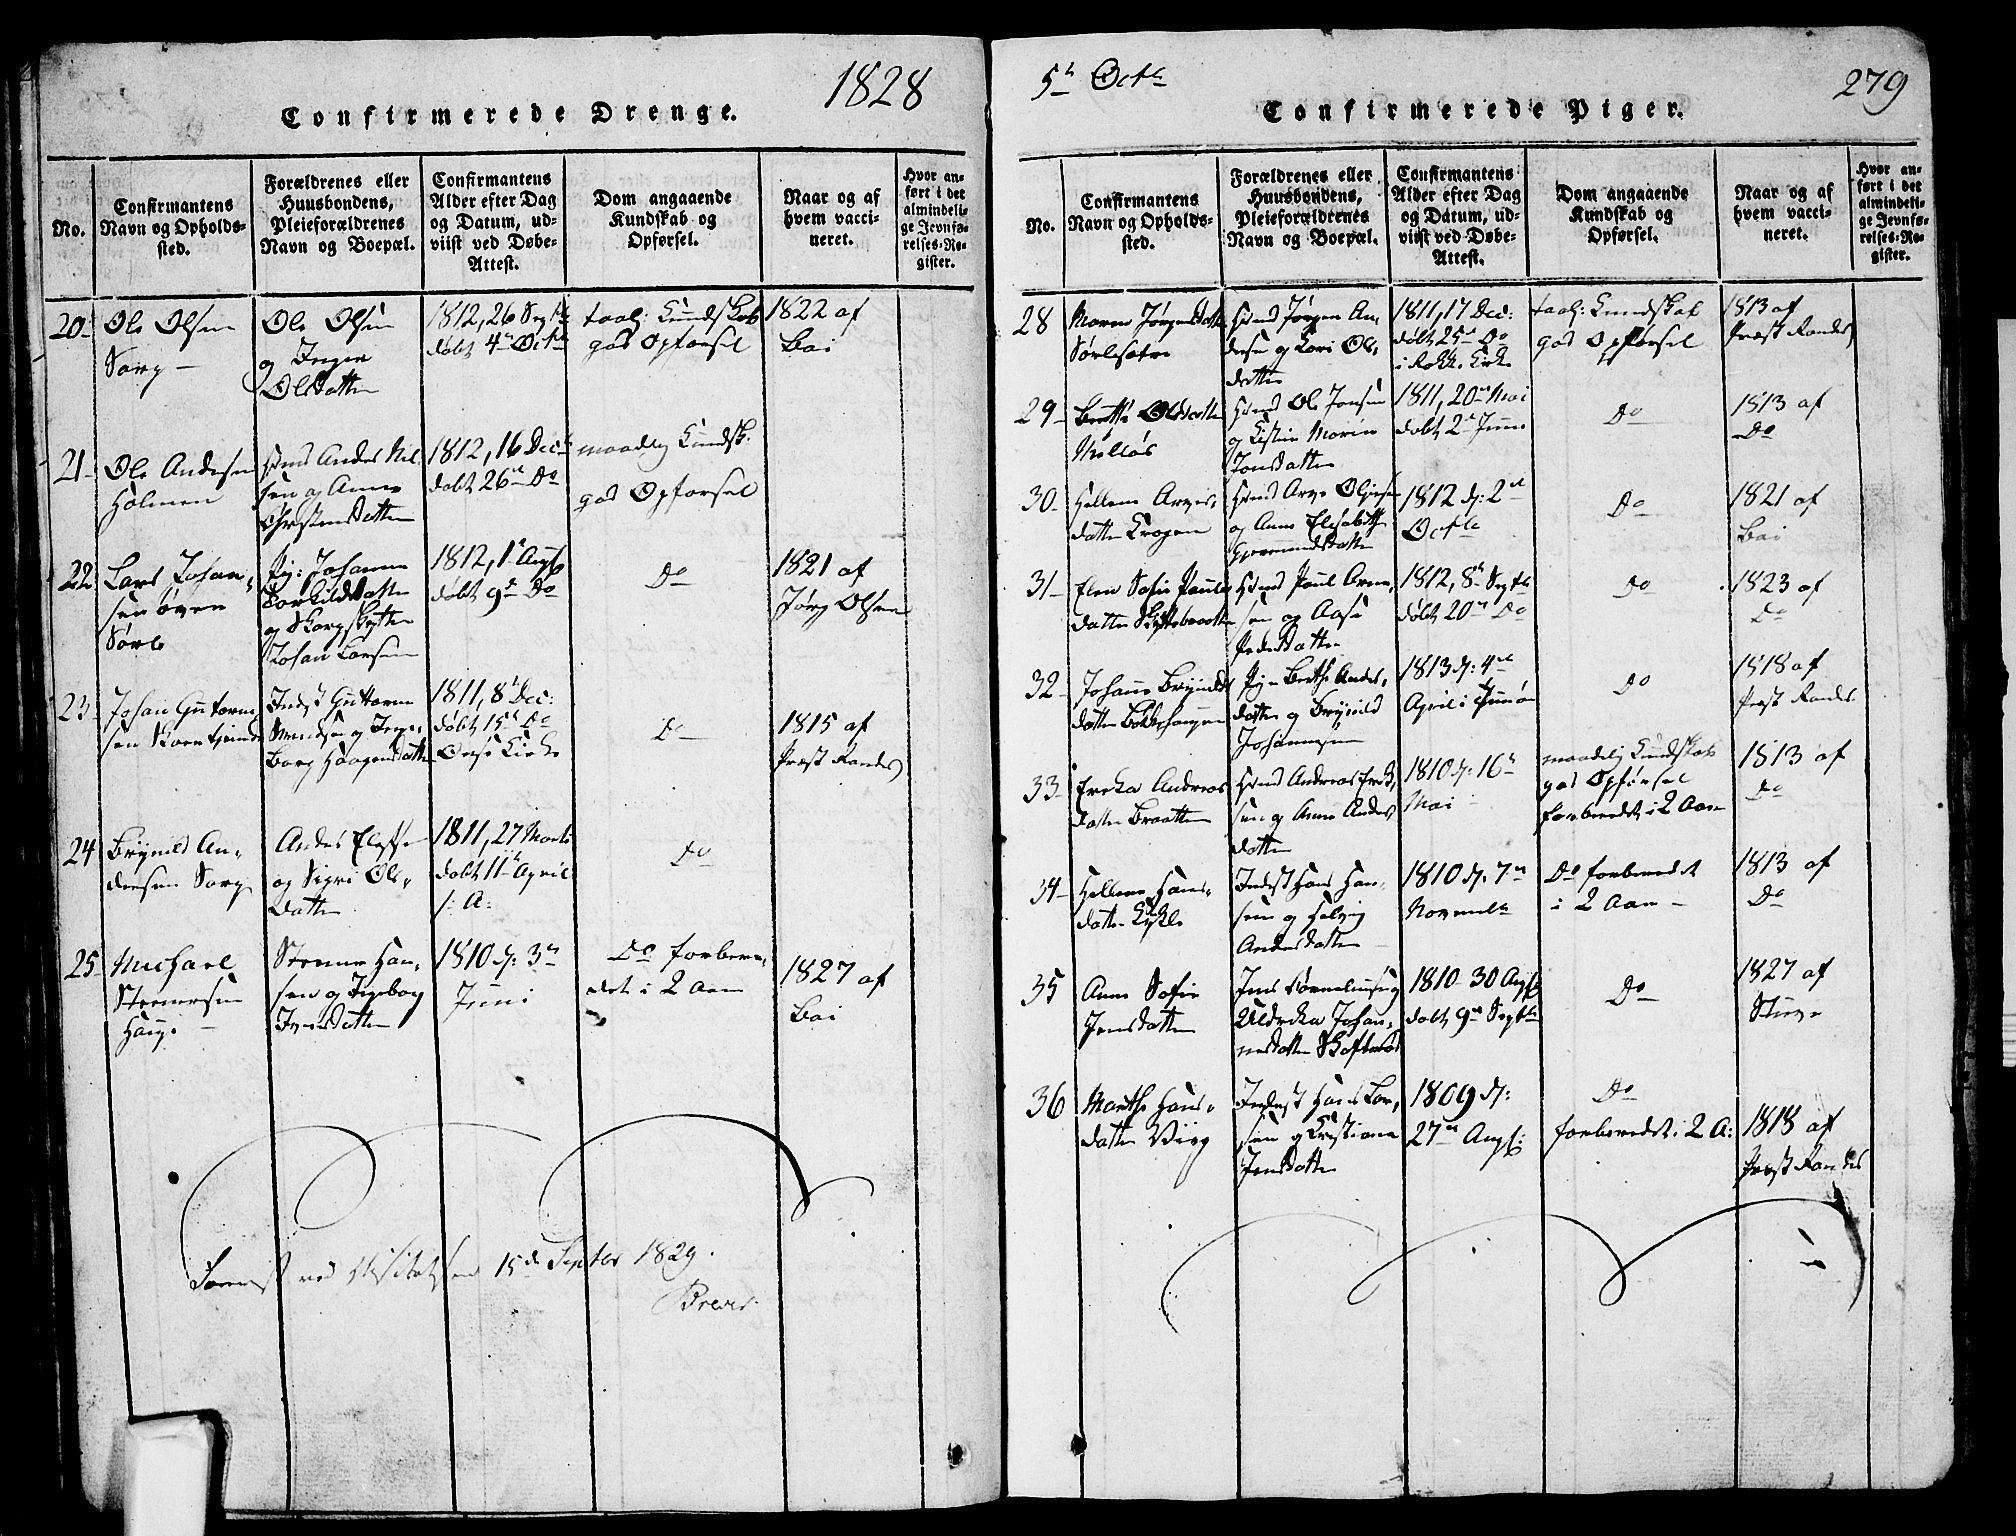 1828
Confirmerede Drenge.
No.
Confirmantens
Navn og Opholds-
sted.
Forældrenes eller
Huusbondens,
Pleieforældrenes
Navn og Boepæl.
Confirmantens
Alder efter Dag
og Datum, ud-
viist ved Døbe-
Attest.
Dom angaaende
Kundskab og
Opførsel.
Naar og af
hvem vacci-
neret.
Hvor an-
ført i det
almindeli-
ge Jevnfø-
relses-Re-
gister.
20
Ole Olsen
Sørg
Ole Olsen
og Inger
Olsdatter
1812, 26 Septbr
døbt 4de Octbr
taal: Kundskab
god Opførsel
1822 af
Boi
21
Ole Andersen
Holmen
Huusm. Anders Nil-
sen og Anne
Christensdatter
1812, 16 Decbr
døbt 26de Do
maadelig Kundsk.
god Opførsel
22
Lars Johan-
sen øvre
Sørb
Pig: Johanne
Torkildsdatter
og
Johan Larsen
1812, 1ste Augst
døbt 9de Do
Do
1821 af
Jørg Olsen
23
Johan Gutorm-
sen
Inderst Guttorm
og Inge-
borg Haagensdatter
1811, 8de Dec:
døbt 15de Do
Kirke
Do
1815 af
Præst Randes
24
Brynild An-
dersen Sørg
Anders
og Sigri Ols-
datter
1811, 27 Marts
døbt 11te April
s: A:
Do
25
Michael
Steenersen
Hauge
Steener Han-
sen og Ingeborg
Iversdatter
1810 d: 3de
Juni
Do forbere-
det i 2 Aar
1827 af
Boi
ved Visitatsen 15de Septbr 1829.
5te Octbr
279
Confirmerede Piger.
No.
Confirmantens
Navn og Opholds-
sted.
Forældrenes eller
Huusbondens,
Pleieforældrenes
Navn og Boepæl.
Confirmantens
Alder efter Dag
og Datum, ud-
viist ved Døbe-
Attest.
Dom angaaende
Kundskab og
Opførsel.
Naar og af
hvem vacci-
neret.
Hvor an-
ført i det
almindeli-
ge Jevnfø-
relses-Re-
gister.
28
Maren Jørgensdatter
Huusm. Jørgen An-
dersen og Kari Ols-
datter
1811, 17 Dec:
døbt 25de Do
i Rokk. Kirke
taal: Kundskab
god Opførsel
1813 af
Præst Randes
29
Berthe Olsdatter
Huusm. Ole Jonsen
og Kistine Marie
Jonsdatter
1811, 20de Mai
døbt 2de Juni
Do
1813 af
Do
30
Hellene Arves-
datter Krogen
Huusm. Arve
og Anne Elisabeth
Gjermundsdatter
1812 d: 2de
Octbr
Do
1821 af
Boi
31
Elen Sofie Pauls-
datter
Huusm. Paul Arne-
sen og Aase
Pedersdatter
1812, 8de Septbr
døbt 20de Do
Do
1823 af
Do
32
Johanne Brynilds-
datter
Pig. Berthe Anders-
datter og Brynild
Johannesen
1813 d: 4de
April i
Do
1818 af
Præst Randes
33
Andreas-
datter Braatten
Huusm. Andreas
sen og Anne Anders-
datter
1810 d: 16de
Mai
maadelig Kundskab
god Opførsel
forberedt i 2 Aar
1813 af
Do
34
Hellene Hans-
datter
Inderst Hans Han-
sen og Helvig
Andersdatter
1810 d: 7de
Novembr
Do forberedt
i 2 Aar
1813 af
Do
35
Anne Sofie
Jensdatter
Jens
Johan-
nesdatter
1810 30 Augst
døbt 9de Septbr
Do
1827 af
36
Marthe Hans-
datter
Inderst Hans Lar-
sen og Kristiane
Jensdatter
1809 d:
27de Augst:
Do
forberedt i 2 A:
1818 af
Præst Randes